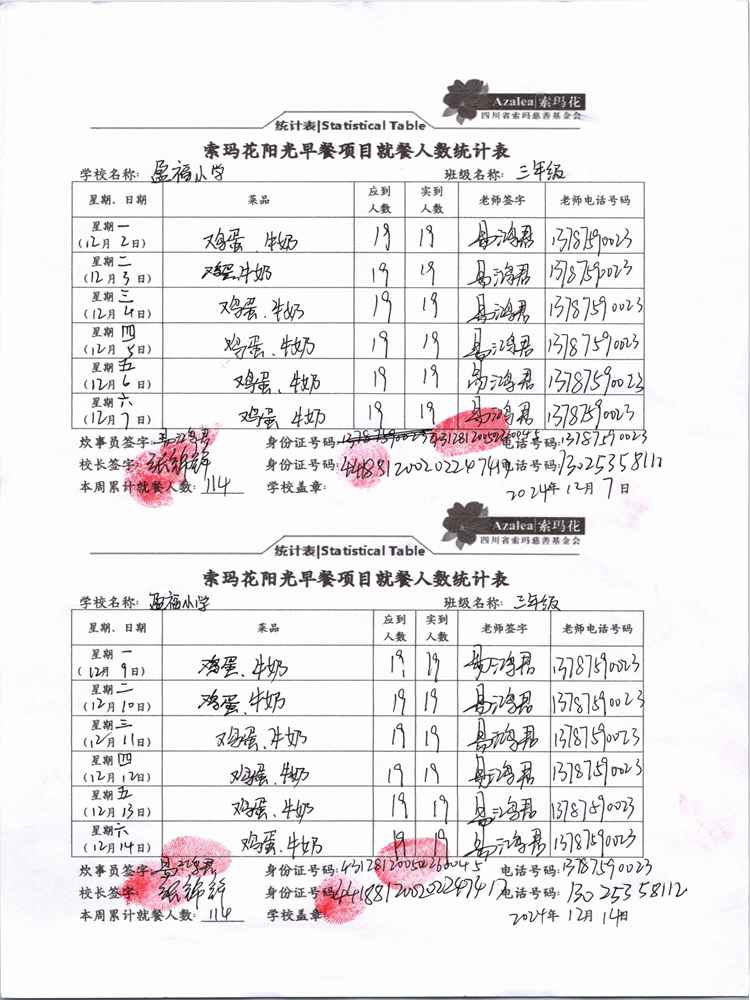 Azalea|索玛花
四川省索玛慈善基金会
统计表|Statistical Table
索玛花阳光早餐项目就餐人数统计表
学校名称: 盈福小学 班级名称: 三年级
星期、日期 菜品 应到人数 实到人数 老师签字 老师电话号码
星期一 (12月2日) 鸡蛋、牛奶 19 19 易鸿君 13787590023
星期二 (12月3日) 鸡蛋、牛奶 19 19 易鸿君 13787590023
星期三 (12月4日) 鸡蛋、牛奶 19 19 易鸿君 13787590023
星期四 (12月5日) 鸡蛋、牛奶 19 19 易鸿君 13787590023
星期五 (12月6日) 鸡蛋、牛奶 19 19 易鸿君 13787590023
星期六 (12月7日) 鸡蛋、牛奶 19 19 易鸿君 13787590023
炊事员签字: 易鸿君 身份证号码: 电话号码: 13787590023
校长签字: 身份证号码: 电话号码: 13025358112
本周累计就餐人数: 114 学校盖章: 2024年12月7日
Azalea|索玛花
四川省索玛慈善基金会
统计表|Statistical Table
索玛花阳光早餐项目就餐人数统计表
学校名称: 盈福小学 班级名称: 三年级
星期、日期 菜品 应到人数 实到人数 老师签字 老师电话号码
星期一 (12月9日) 鸡蛋、牛奶 19 19 易鸿君 13787590023
星期二 (12月10日) 鸡蛋、牛奶 19 19 易鸿君 13787590023
星期三 (12月11日) 鸡蛋、牛奶 19 19 易鸿君 13787590023
星期四 (12月12日) 鸡蛋、牛奶 19 19 易鸿君 13787590023
星期五 (12月13日) 鸡蛋、牛奶 19 19 易鸿君 13787590023
星期六 (12月14日) 鸡蛋、牛奶 19 19 易鸿君 13787590023
炊事员签字: 易鸿君 身份证号码: 电话号码: 13787590023
校长签字: 身份证号码: 电话号码: 13025358112
本周累计就餐人数: 114 学校盖章: 2024年12月14日